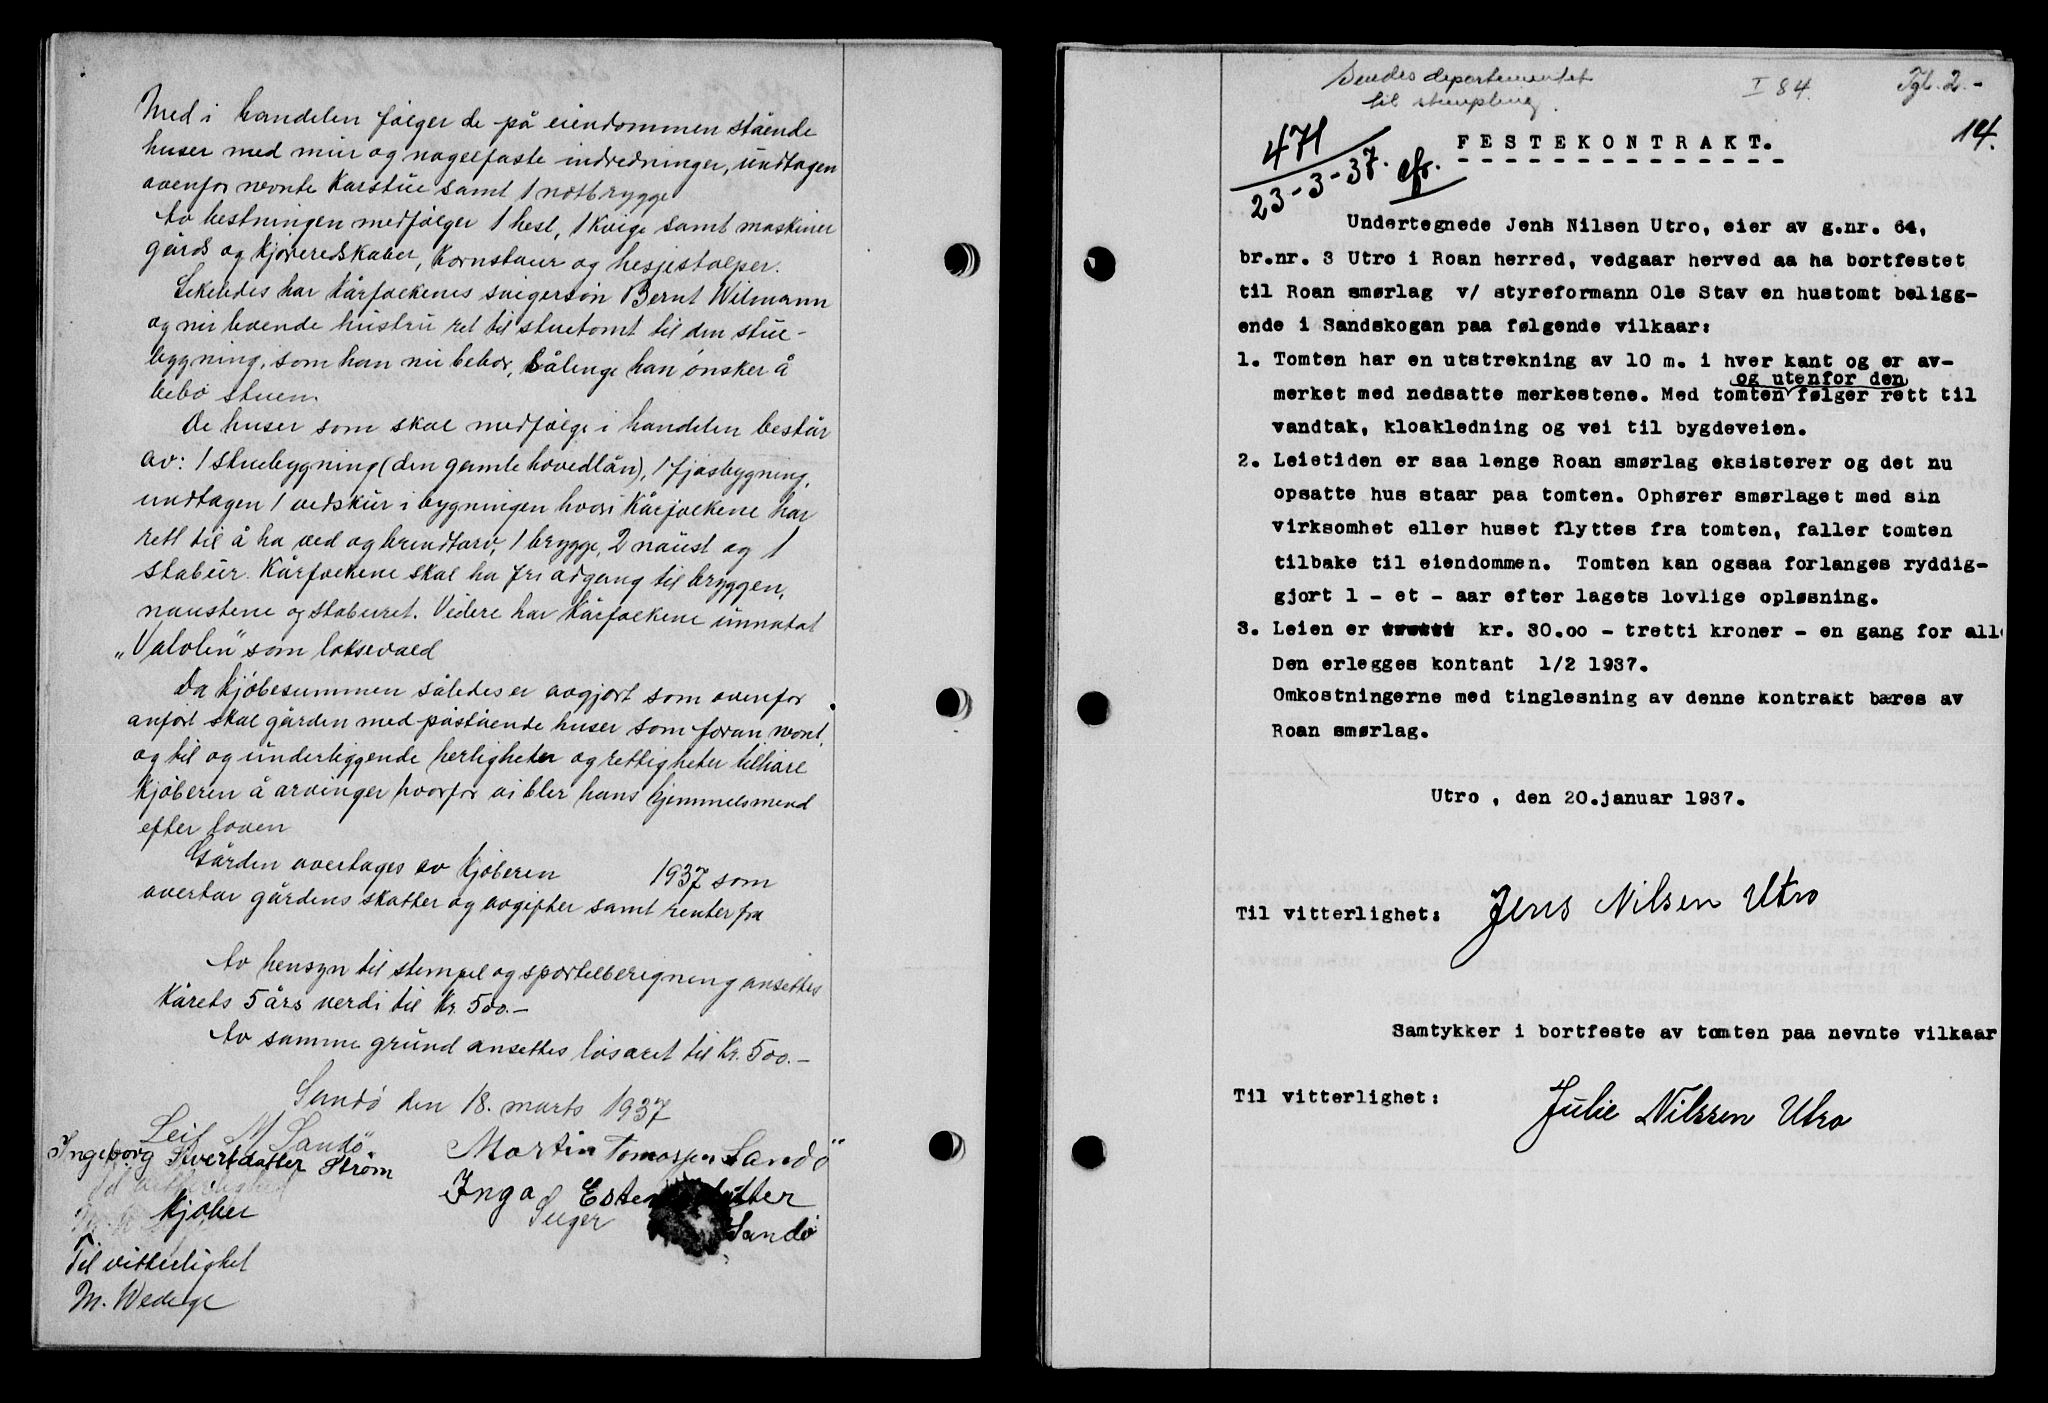 Med i handelen følger de på eiendommen stående
huser med mur og nagelfaste indredninger, undtagen
ovenfor nevnte Karstue samt 1 notbrygge
Av bestningen medfølger 1 hest, 1 Kvige samt maskiner
gårds og kjøreredskaber, Kornstaur og hesjestolper.
Likeledes har Kårfolkenes svigersøn Bernt Wilmann
og nu levende hustru ret til stuetomt til den stue-
bygning, som han nu bebor, sålenge han ønsker å
bebo stuen.
De huser som skal medfølge i handelen består
av: 1 stuebygning (den gamle hovedlån), 1 fjøsbygning,
undtagen 1 vedskur i bygningen hvori Kårfolkene har
rett til å ha ved og brendtorv, 1 brygge, 2 naust og 1
stabur. Kårfolkene skal ha fri adgang til bryggen,
naustene og staburet. Videre har Kårfolkene unnatat
"Valolin" som laksevald
Da kjøbesummen således er avgjort som ovenfor
anført skal gården med påstående huser som foran nevnt,
og til og underliggende herligheter og rettigheter tilhøre
kjøberen å arvinger hvorfor vi bler hans hjemmelsmend
efter loven
Gården overtages av kjøberen 1937 som
overtar gårdens skatter og avgifter samt renter fra
Av hensyn til stempel og sportelberegning ansettes
Kårets 5 års verdi til Kr. 500.-
Av samme grund ansettes løsøret til Kr. 500.-
Sandø den 18. marts 1937
Leif M Sandø
Ingeborg Sivertdatter Strøm
Kjøber
Til vitterlighet
M. Wedege
Martin Tomassen Sandö
Inga Esten datter
Selger Sandö
Sendes departementet
til stempling.
I 84.
Tgl. 2.-
14.
471
23-3-37. efr.
FESTEKONTRAKT.
Undertegnede Jens Nilsen Utro, eier av g.nr. 64,
br.nr. 3 Utro i Roan herred, vedgaar herved aa ha bortfestet
til Roan smørlag v/ styreformann Ole Stav en hustomt beligg-
ende i Sandskogan paa følgende vilkaar:
1. Tomten har en utstrekning av 10 m. i hver kant og er av-
og utenfor den
merket med nedsatte merkestene. Med tomten følger rett til
vandtak, kloakledning og vei til bygdeveien.
2. Leietiden er saa lenge Roan smørlag eksisterer og det nu
opsatte hus staar paa tomten. Ophører smørlaget med sin
virksomhet eller huset flyttes fra tomten, faller tomten
tilbake til eiendommen. Tomten kan ogsaa forlanges ryddig-
gjort 1 - et - aar efter lagets lovlige opløsning.
3. Leien er kr. 30.00 - tretti kroner - en gang for all
Den erlegges kontant 1/2 1937.
Omkostningerne med tinglesning av denne kontrakt bæres av
Roan smørlag.
Utro, den 20.januar 1937.
Til vitterlighet: Jens Nilsen Utro
Samtykker i bortfeste av tomten paa nevnte vilkaar
Til vitterlighet: Julie Nilssen Utro